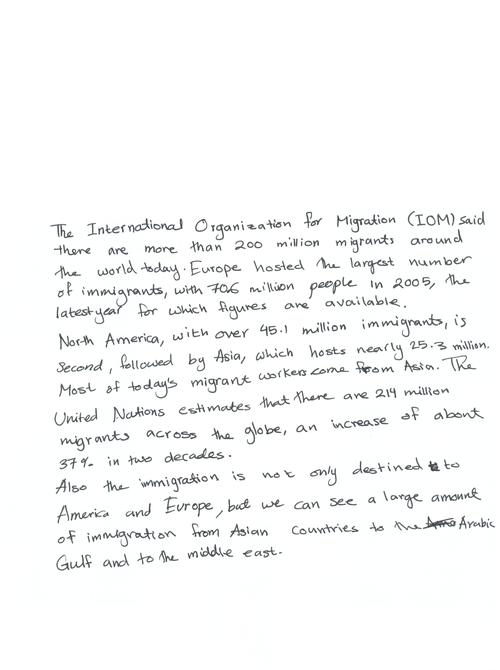 The International Organization for Migration (IOM) said
there are more than 200 million migrants around
the world today. Europe hosted the largest number
of immigrants, with 70.6 million people in 2005, the
latest year for which figures are available.
North America, with over 45.1 million immigrants, is
second, followed by Asia, which hosts nearly 25.3 million.
Most of today's migrant workers come from Asia. The
United Nations estimates that there are 214 million
migrants across the globe, an increase of about
37% in two decades.
Also the immigration is not only destined to
America and Europe, but we can see a large amount
of immigration from Asian Countries to the Arabic
Gulf and to the middle east.